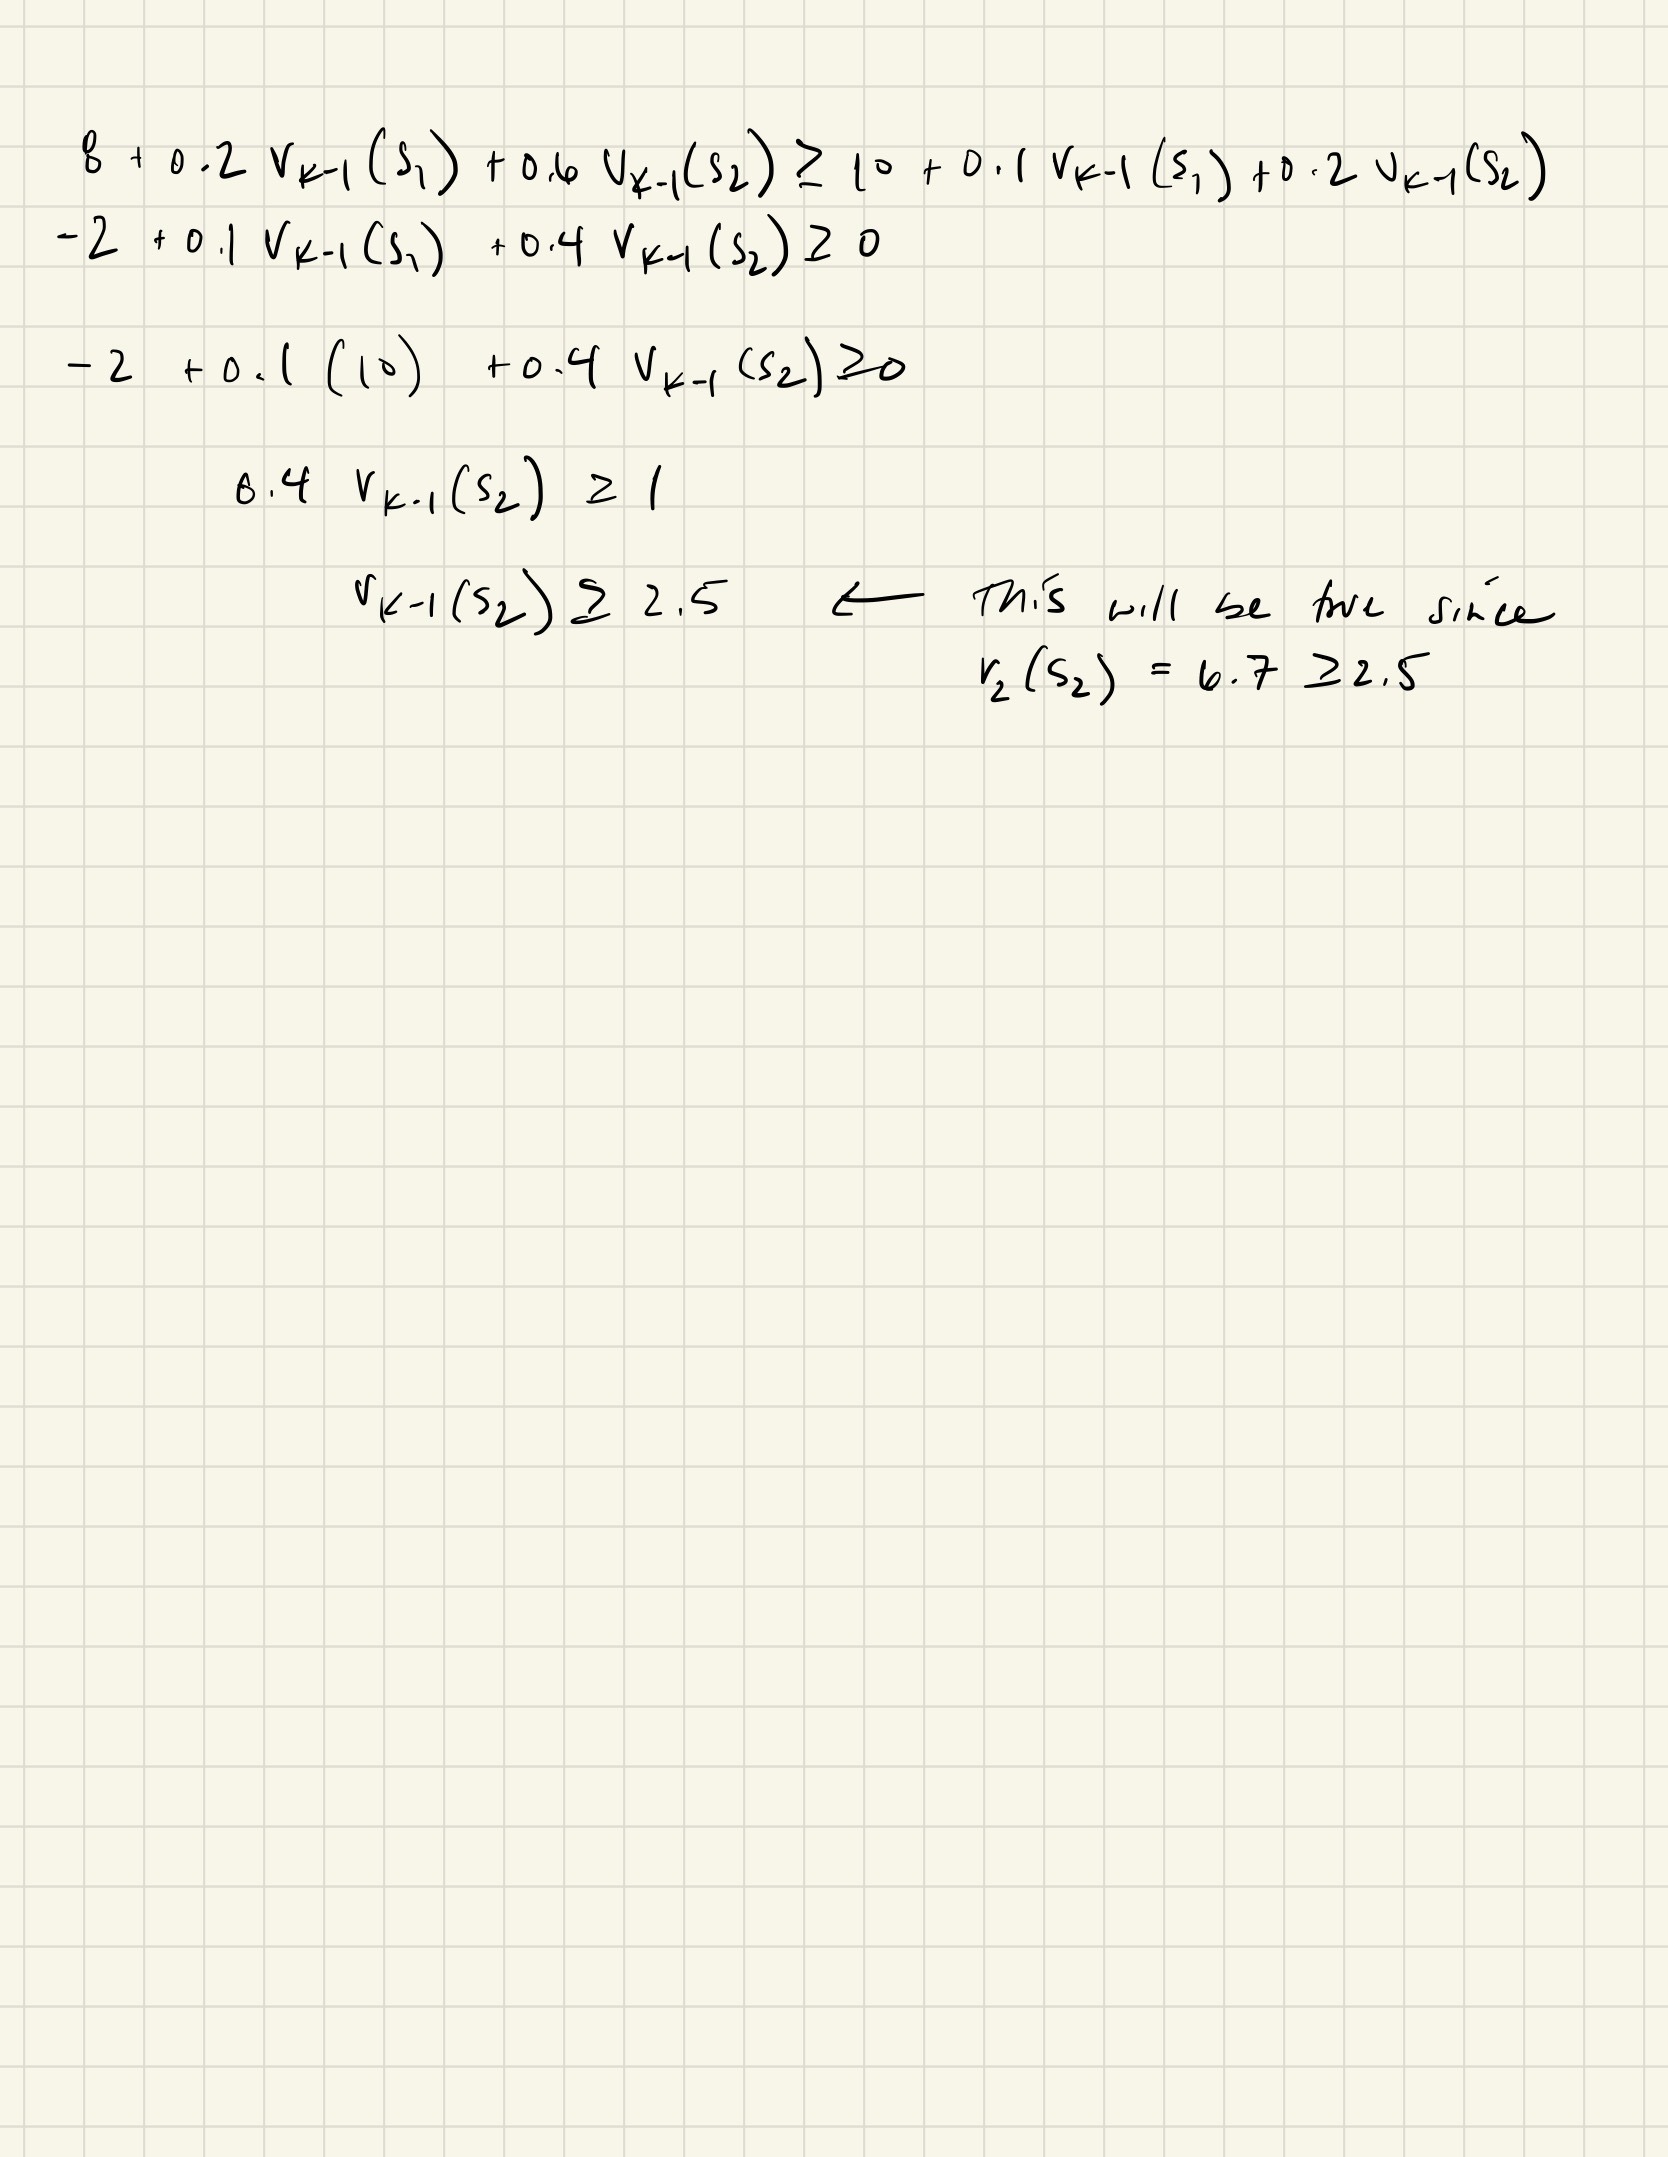 8 + 0.2 V_{K-1}(S_1) + 0.6 V_{K-1}(S_2) ≥ 10 + 0.1 V_{K-1}(S_1) + 0.2 V_{K-1}(S_2)
-2 + 0.1 V_{K-1}(S_1) + 0.4 V_{K-1}(S_2) ≥ 0
-2 + 0.1 (10) + 0.4 V_{K-1}(S_2) ≥ 0
0.4 V_{K-1}(S_2) ≥ 1
V_{K-1}(S_2) ≥ 2.5 ← This will be true since
V_2(S_2) = 6.7 ≥ 2.5